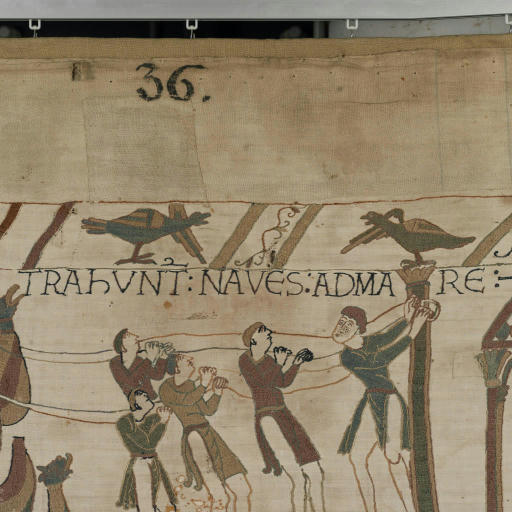 36.
TRAhVNT̄: NAVES: ADMARE: